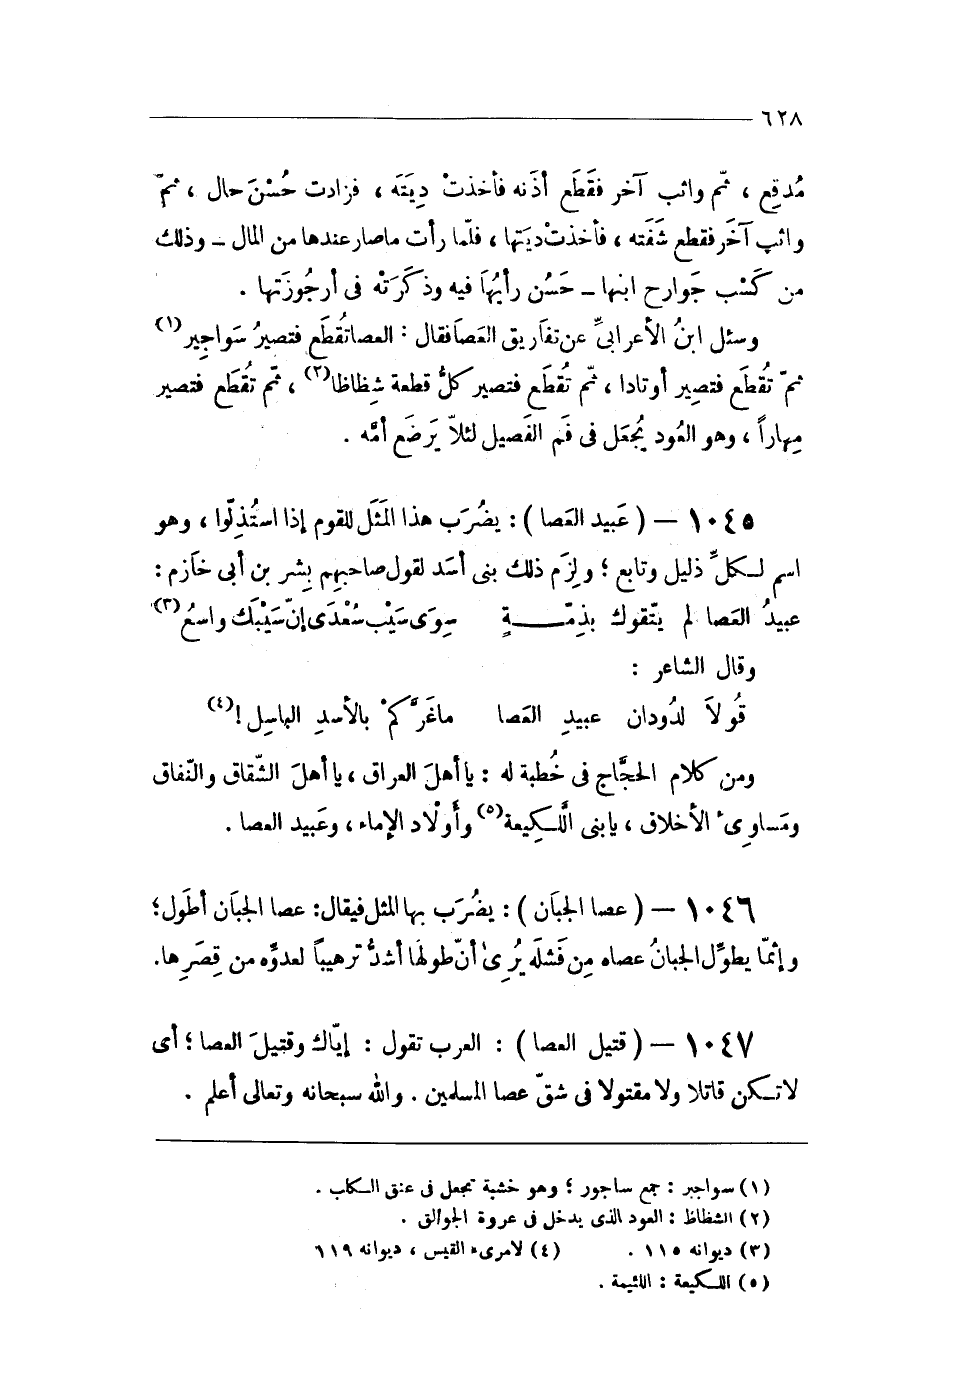 ٦٢٨
مُدقِع ، ثمّ واثب آخر فقَطَع أذَنه فأخذتْ دِيَتَه ، فزادت حُسْنَ حال ، ثمّ
واثب آخَر فقطع شَفَته ، فأخذتْ ديَتها ، فلمّا رأت ماصار عندها من المال ــ وذلك
من كَسْب جَوارح ابنها ــ حَسُن رأيُهَا فيه وذكَرَتْه فى أرجُوزَتها .
وسئل ابنُ الأعرابىِّ عن تفَاريق العَصَا فقال : العصا تُقطَع فتصيرُ سَواجِير(١)
ثمّ تُقطَع فتصِير أوتادا ، ثمّ تُقطَع فتصير كلُّ قطعة شِظاظا(٢) ، ثمّ تُقطَع فتصير
مِهاراً ، وهو العُود يُجعَل فى فَم الفَصيل لئلاّ يَرضَع أمَّه .
١٠٤٥ – ( عَبيد العَصا ) : يضُرَب هذا المَثَل للقوم إذا استُذِلّوا ، وهو
اسم لـكلِّ ذليل وتابع ؛ ولزِم ذلك بنى أسَد لقول صاحبهم بِشر بن أبى خَازم :
عبيدُ العَصا لم يتّقوك بذِمّـــةٍ سِوَى سَيْب سُعْدَى إنّ سَيْبَك واسعُ(٣)
وقال الشاعر :
قُولاَ لدُودان عبيدِ العَصا ماغَرَّكمْ بالأسدِ الباسِل !(٤)
ومن كلام الحجَّاج فى خُطبة له : يا أهلَ العراق ، يا أهلَ الشّقاق والنّفاق
ومَساوِىء الأخلاق ، يابنى الَّلـكِيعة(٥) وأَوْلاد الإماء ، وعَبيد العصا .
١٠٤٦ – ( عصا الجبَان ) : يضُرَب بها المثل فيقال: عصا الجبَان أطوَل؛
وإنّما يطوِّل الجبانُ عصاه مِن فَشَله يُرِىٰ أنّ طولهَا أشدُّ ترهيباً لعدوِّه من قِصَرِها.
١٠٤٧ – ( قتيل العصا ) : العرب تقول : إيّاك وقتيلَ العصا ؛ أى
لا تـكن قاتلا ولا مقتولا فى شقّ عصا المسلمين . والله سبحانه وتعالى أعلم .
(١) سواجير : جمع ساجور ؛ وهو خشبة تجعل فى عنق الـكلب .
(٢) الشظاظ : العود الذى يدخل فى عروة الجوالق .
(٣) ديوانه ١١٥ . (٤) لامرىء القيس ، ديوانه ١١٩
(٥) اللـكيعة : اللئيمة .